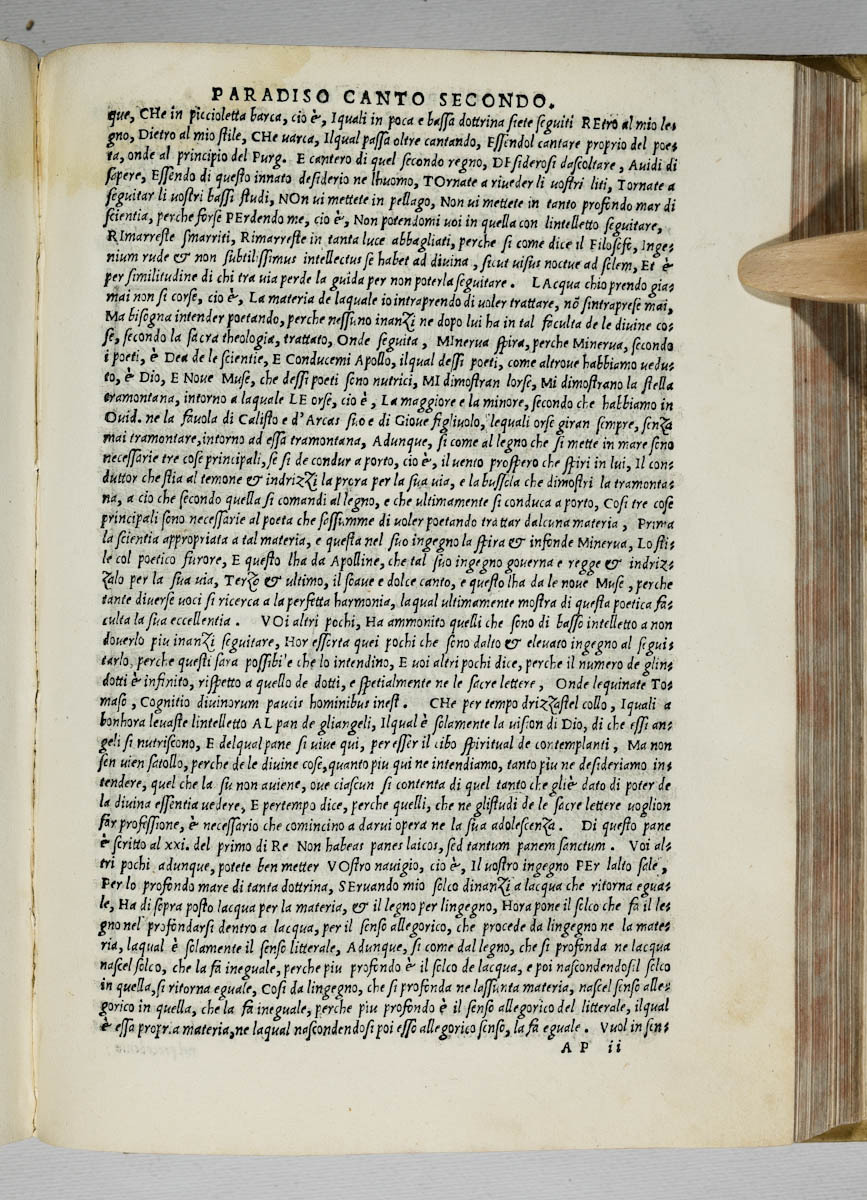 PARADISO CANTO SECONDO.
que, CHe in piccioletta barca, cio è, Iquali in poca e bassa dottrina siete seguiti REtro al mio le⸗
gno, Dietro al mio stile, CHe uarca, Ilqual passa oltre cantando, Essendol cantare proprio del poe⸗
ta, onde al principio del Purg. E cantero di quel secondo regno, DEsiderosi dascoltare, Auidi di
sapere, Essendo di questo innato desiderio ne lhuomo, TOrnate a riueder li uostri liti, Tornate a
seguitar li uostri bassi studi, NOn ui mettete in pellago, Non ui mettete in tanto profondo mar di
scientia, perche forse PErdendo me, cio è, Non potendomi uoi in quella con lintelletto seguitare,
RImarreste smarriti, Rimarreste in tanta luce abbagliati, perche si come dice il Filosofo, Inge⸗
nium rude & non subtilissimus intellectus se habet ad divina, sicut uisus noctue ad solem, Et è
per similitudine di chi tra uia perde la guida per non poterla seguitare. LAcqua chio prendo gia⸗
mai non si corse, cio è, La materia de laquale io intraprendo di uoler trattare, nõ sintraprese mai,
Ma bisogna intender poetando, perche nessuno inanzi ne dopo lui ha in tal faculta de le diuine co⸗
se, secondo la sacra theologia, trattato, Onde seguita, MInerua spira, perche Minerua, secondo
i poeti, è Dea de le scientie, E Conducemi Apollo, ilqual dessi poeti, come altroue habbiamo uedu⸗
to, è Dio, E Noue Muse, che dessi poeti sono nutrici, MI dimostran lorse, Mi dimostrano la stella
tramontana, intorno a laquale LE orse, cio è, La maggiore e la minore, secondo che habbiamo in
Ouid. ne la fauola di Calisto e d'Arcas suo e di Gioue figliuolo, lequali orse giran sempre, senza
mai tramontare, intorno ad essa tramontana, Adunque, si come al legno che si mette in mare sono
necessarie tre cose principali, se si de condur a porto, cio è, il uento prospero che spiri in lui, Il con⸗
duttor che stia al temone & indrizzi la prora per la sua uia, e la bussola che dimostri la tramonta⸗
na, a cio che secondo quella si comandi al legno, e che ultimamente si conduca a porto, Cosi tre cose
principali sono necessarie al poeta che sassumme di uoler poetando trattar dalcuna materia, Prima
la scientia appropriata a tal materia, e questa nel suo ingegno la spira & infonde Minerua, Lo sti⸗
le col poetico furore, E questo lha da Apolline, che tal suo ingegno gouerna e regge & indriz⸗
zalo per la sua uia, Terzo & ultimo, il soaue e dolce canto, e questo lha da le noue Muse, perche
tante diuerse uoci si ricerca a la perfetta harmonia, laqual ultimamente mostra di questa poetica fa⸗
culta la sua eccellentia. VOi altri pochi, Ha ammonito quelli che sono di basso intelletto a non
douerlo piu inanzi seguitare, Hor essorta quei pochi che sono dalto & eleuato ingegno al segui⸗
tarlo, perche questi sara possibile che lo intendino, E uoi altri pochi dice, perche il numero de glin⸗
dotti è infinito, rispetto a quello de dotti, e spetialmente ne le sacre lettere, Onde lequinate To⸗
maso, Cognitio diuinorum paucis hominibus inest. CHe per tempo drizzastel collo, Iquali a
bonhora leuaste lintelletto AL pan de gliangeli, Ilqual è solamente la uision di Dio, di che essi an⸗
geli si nutriscono, E delqual pane si uiue qui, per esser il cibo spiritual de contemplanti, Ma non
sen uien satollo, perche de le diuine cose, quanto piu qui ne intendiamo, tanto piu ne desideriamo in⸗
tendere, quel che la su non auiene, oue ciascun si contenta di quel tanto che gliè dato di poter de
la diuina essentia uedere, E pertempo dice, perche quelli, che ne glistudi de le sacre lettere uoglion
far professione, è necessario che comincino a darui opera ne la sua adolescenza. Di questo pane
è scritto al xxi. del primo di Re Non habeas panes laicos, sed tantum panem sanctum. Voi al⸗
tri pochi adunque, potete ben metter VOstro nauigio, cio è, Il uostro ingegno PEr lalto sale,
Per lo profondo mare di tanta dottrina, SEruando mio solco dinanzi a lacqua che ritorna egua⸗
le, Ha di sopra posto lacqua per la materia, & il legno per lingegno, Hora pone il solco che fa il le⸗
gno nel profondarsi dentro a lacqua, per il senso allegorico, che procede da lingegno ne la mate⸗
ria, laqual è solamente il senso litterale, Adunque, si come dal legno, che si profonda ne lacqua
nascel solco, che la fa ineguale, perche piu profondo è il solco de lacqua, e poi nascondendosil solco
in quella, si ritorna eguale, Cosi da lingegno, che si profonda ne lassunta materia, nascel senso alle⸗
gorico in quella, che la fa ineguale, perche piu profondo è il senso allegorico del litterale, ilqual
è essa propria materia, ne laqual nascondendosi poi esso allegorico senso, la fa eguale. Vuol in sen⸗
AP ii